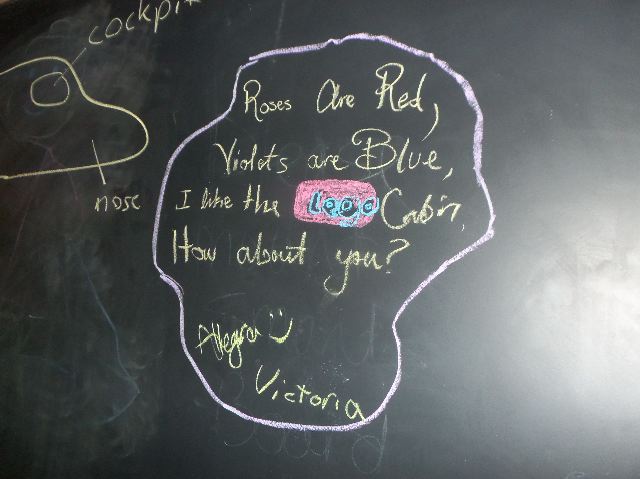 cockpit
nose
Roses are Red,
Violets are Blue,
I like the Logo Cabin,
How about you?
Allegra :)
Victoria